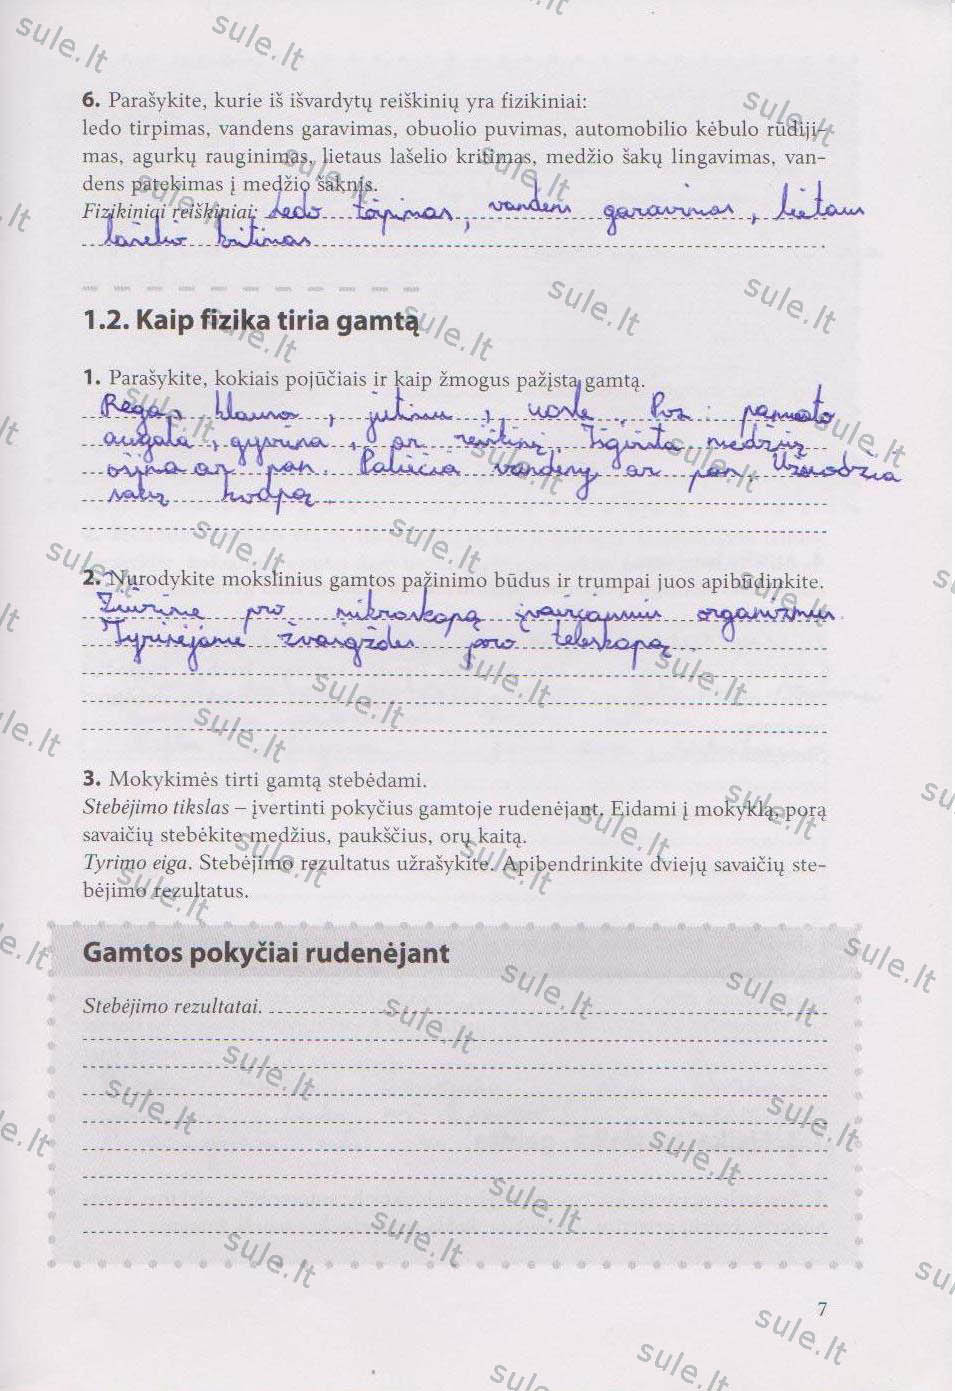 6. Parašykite, kurie iš išvardytų reiškinių yra fizikiniai:
ledo tirpimas, vandens garavimas, obuolio puvimas, automobilio kėbulo rūdiji-
mas, agurkų rauginimas, lietaus lašelio kritimas, medžio šakų lingavimas, van-
dens patekimas į medžio šaknis.
Fizikiniai reiškiniai: Ledo tirpimas, vandens garavimas, lietaus
lašelio kritimas
1.2. Kaip fizika tiria gamtą
1. Parašykite, kokiais pojūčiais ir kaip žmogus pažįsta gamtą.
Rega, klausa, jutimu, uosle. Pvz: pamato
augalą, gyvūną, ar reiškinį. Išgirsta medžių
ošimą ar pan. Paliečia vandenį ar pan. Užuodžia
sakų kvapą.
2. Nurodykite mokslinius gamtos pažinimo būdus ir trumpai juos apibūdinkite.
Žiūrime pro mikroskopą įvairiausius organizmus.
Tyrinėjame žvaigždes pro teleskopą.
3. Mokykimės tirti gamtą stebėdami.
Stebėjimo tikslas – įvertinti pokyčius gamtoje rudenėjant. Eidami į mokyklą, porą
savaičių stebėkite medžius, paukščius, orų kaitą.
Tyrimo eiga. Stebėjimo rezultatus užrašykite. Apibendrinkite dviejų savaičių ste-
bėjimo rezultatus.
Gamtos pokyčiai rudenėjant
Stebėjimo rezultatai.
7
sule.lt